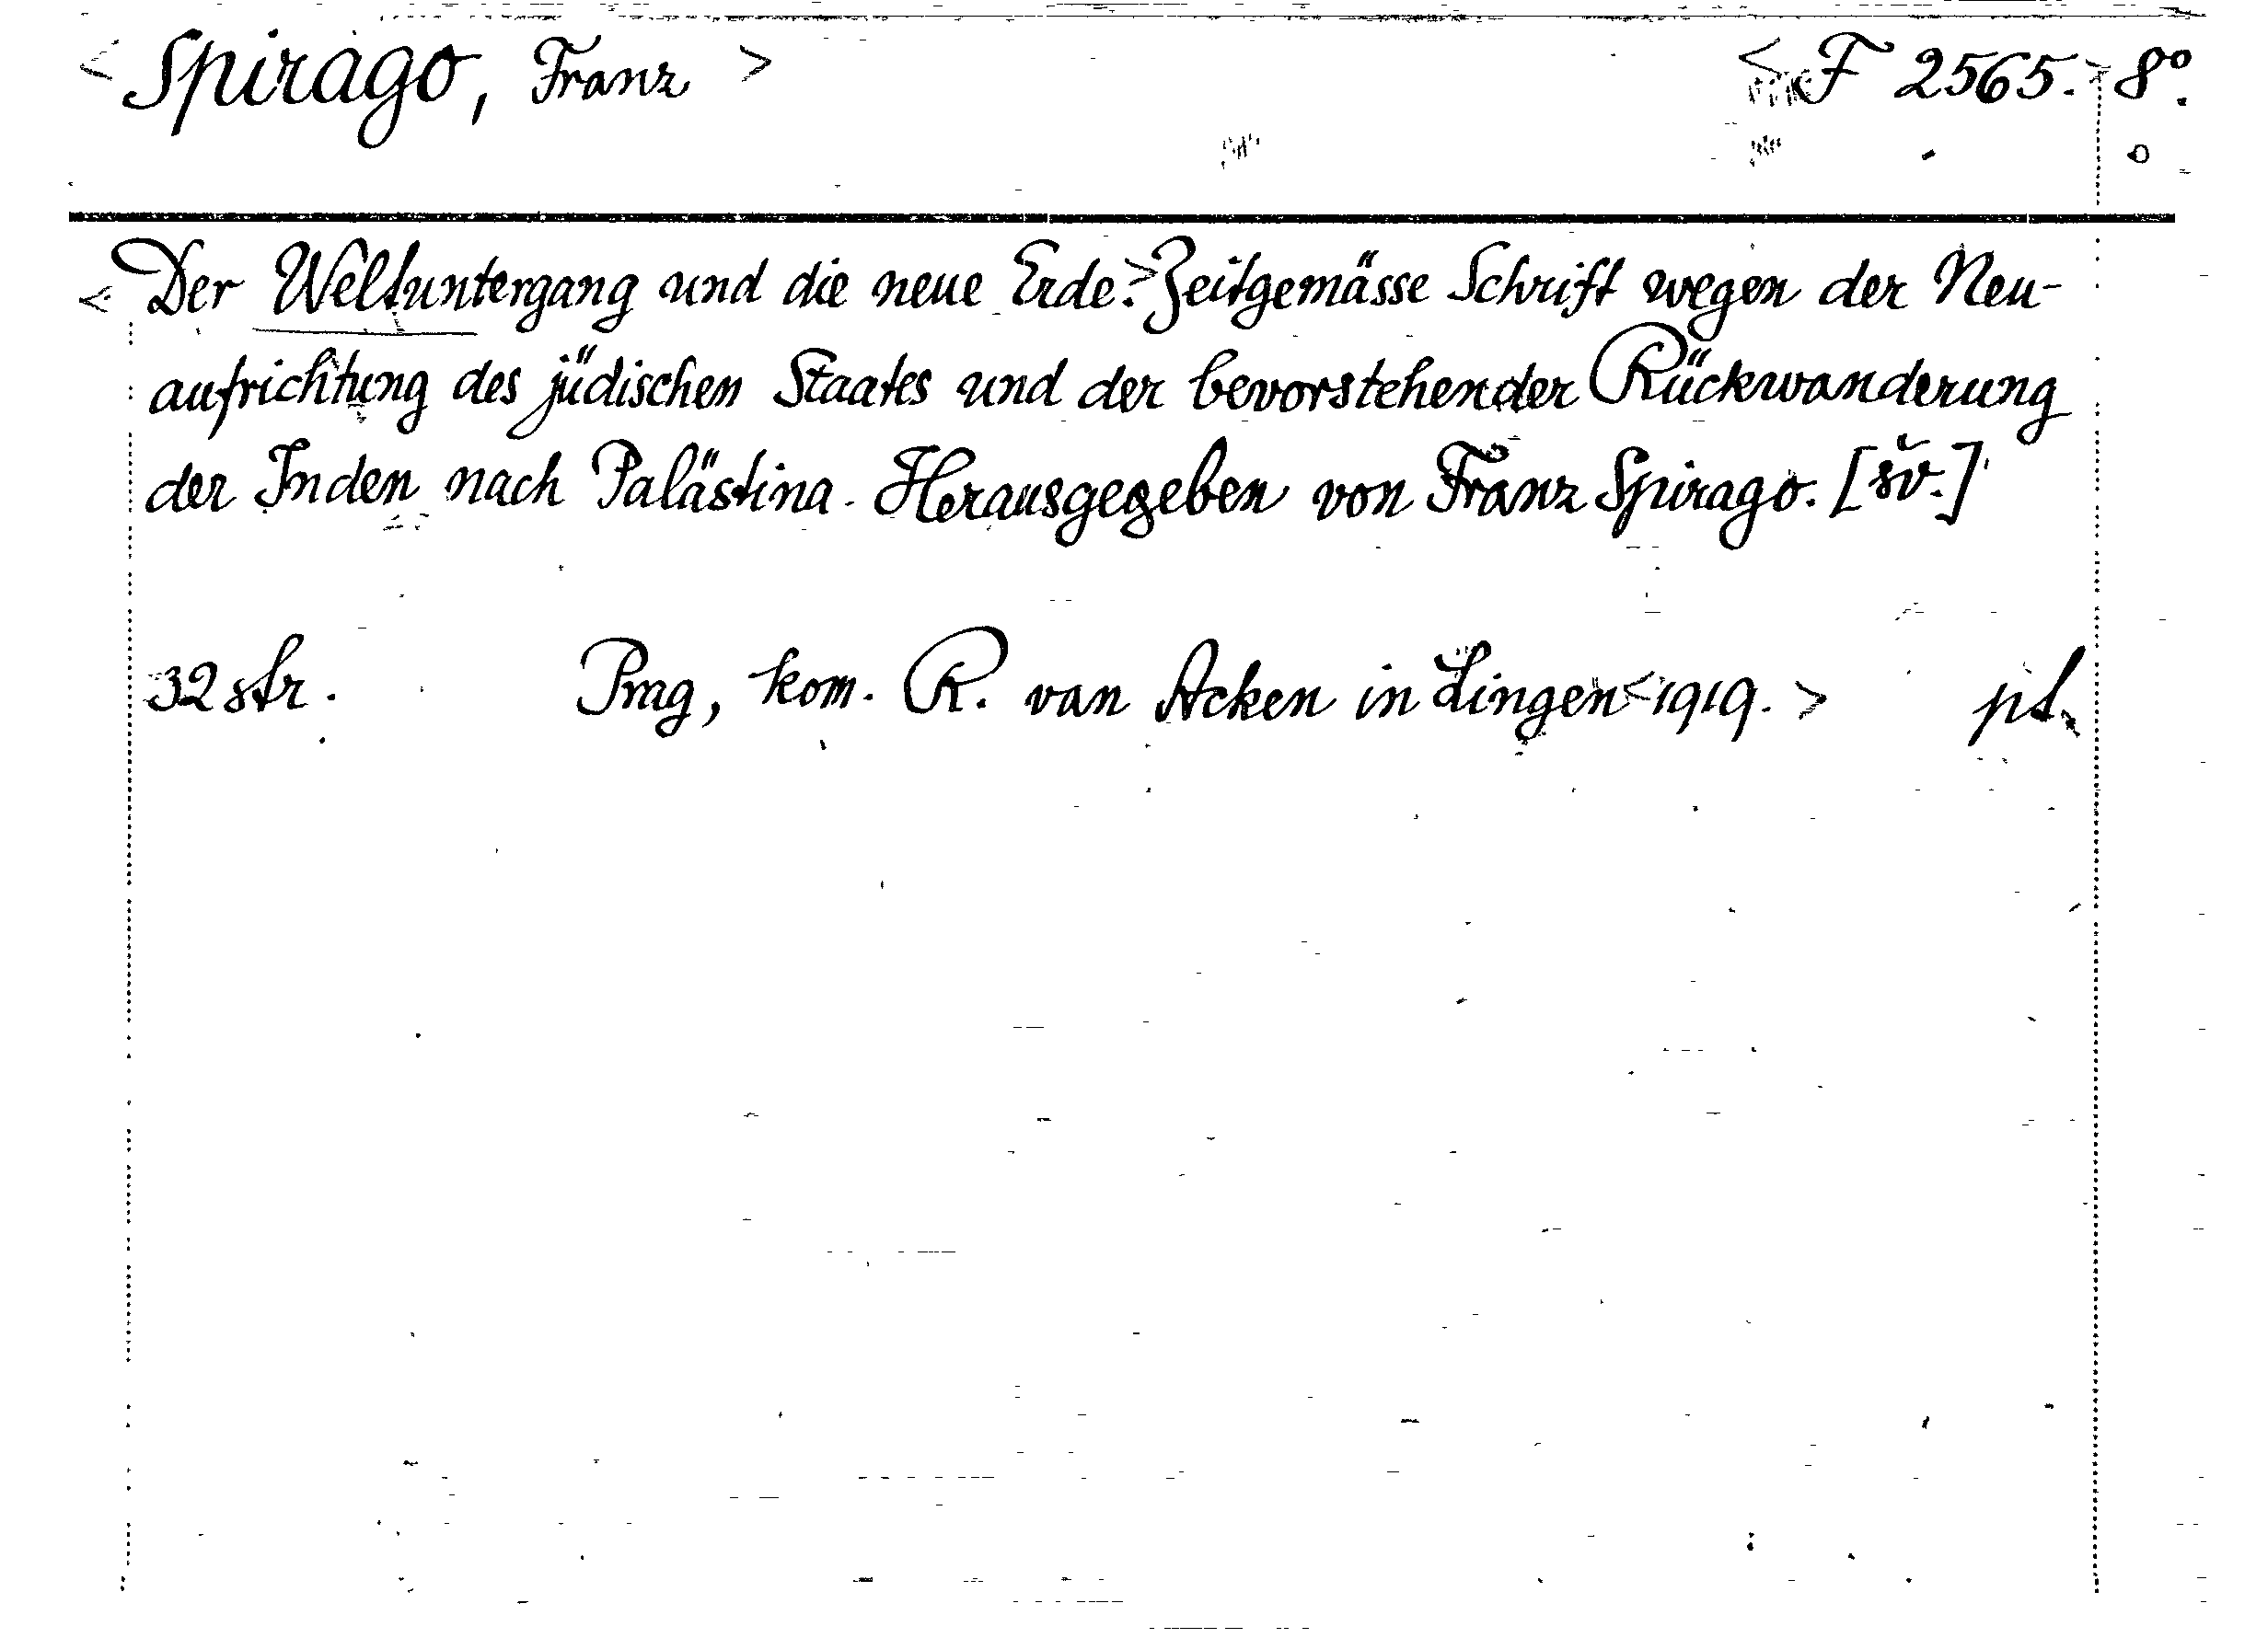 < Spirago, Franz > < F 2565. > 8°.
< Der Weltuntergang und die neue Erde. > Zeitgemässe Schrift wegen der Neu-
aufrichtung des jüdischen Staates und der bevorstehender Rückwanderung
der Juden nach Palästina. Herausgegeben von Franz Spirago. [šv.]
32 str. Prag, kom. R. van Acken in Lingen < 1919. >